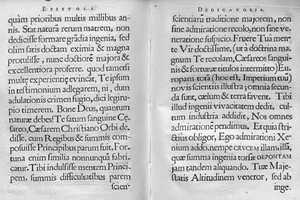 EPISTOLA
quàm prioribus multis millibus an-
nis. Stat natura rerum matrem, non
dedicisse formare gradia ingenia, sed
olim satis doctam eximia & magna
protulisse, nunc doctiorē majora &
excellentiora proferre. quod
multi experientiȩ vincunt. Te ipsum
in testimonium adlegarem, ni, dum
adulationis crimen fugio, dici ingru-
pio timerem. Bone Deus, quantum
naturæ debes! Te fatum sanguine Cę-
sareo, Cæsarem Christiani Orbis de-
disse, cum Regibus & summis com-
posuisse Principibus parum fuit. For-
tuna enim similia nonnunquā fabri-
catur. Tibi indulsisse mentem Princi-
pem, summis difficultatibus parem
scien-
DEDICATORIA.
scientiarū traditione majorem, non
sine admiratione recolo, non sine ve-
neratione suspicio. Fruere Tuâ mer-
te Vir doctissime, (ut à doctrina ma-
gnum Te ordiar) Cæsareos sangui-
nis & fortunæ titulos intermitto) Eu-
ropam totā (hoc est, Imperium cui)
novis scientiis illustra, omnia secun-
da sunt, cælum & terra favent. Tibi
illud ingenii vivacitatem dedit, cul-
tum industria addidit, Nos omnes
admiratione pendimus. Et quia stri-
ctius obligor, Ego admirationi Xe-
nium addo nempe
quæ summa ingenia totius DEPONTAM
jam tandem aliquando. Tuæ Maje-
statis Altitudinem veneror, sed ab
inge-